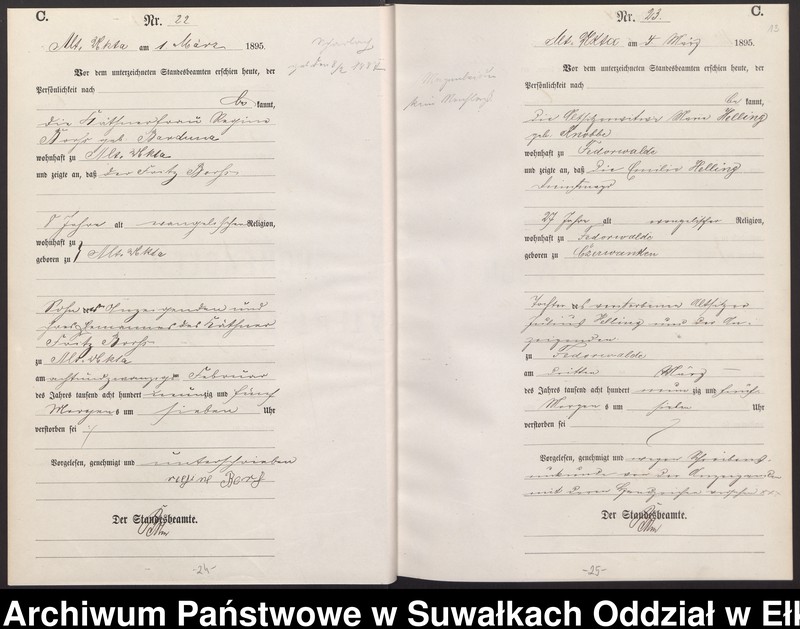 C.
Nr. 22
Alt. Ukta am 1 März 1895.
Vor dem unterzeichneten Standesbeamten erschien heute, der
Persönlichkeit nach
be kannt,
die Käthnerfrau Regine
geb.
wohnhaft zu Alt. Ukta
und zeigte an, daß der Fritz
8 Jahre alt evangelischer Religion,
wohnhaft zu
geboren zu Alt. Ukta
Sohn der Anzeigenden und
Ehemannes des Käthner
Fritz
zu Alt. Ukta
am achtundzwanzig Februar
des Jahres tausend acht hundert neunzig und fünf
Morgens um sieben Uhr
verstorben sei
Vorgelesen, genehmigt und unterschrieben
Der Standesbeamte.
-24-
C.
Nr. 23.
Alt. Ukta am 4 März 1895.
Vor dem unterzeichneten Standesbeamten erschien heute, der
Persönlichkeit nach
be kannt,
die Altsitzerwitwe Helling
geb.
wohnhaft zu Fedorwalde
und zeigte an, daß die Emilie Helling
27 Jahre alt evangelischer Religion,
wohnhaft zu Fedorwalde
geboren zu Czerwanken
Tochter des verstorbenen Altsitzer
Helling und der An-
zeigenden
zu Fedorwalde
am dritten März
des Jahres tausend acht hundert neunzig und fünf
Morgens um sieben Uhr
verstorben sei
Vorgelesen, genehmigt und wegen Schreibens-
unkunde von der Anzeigenden
mit deren Handzeichen versehen
Der Standesbeamte.
-25-
Archiwum Państwowe w Suwałkach Oddział w Ełk